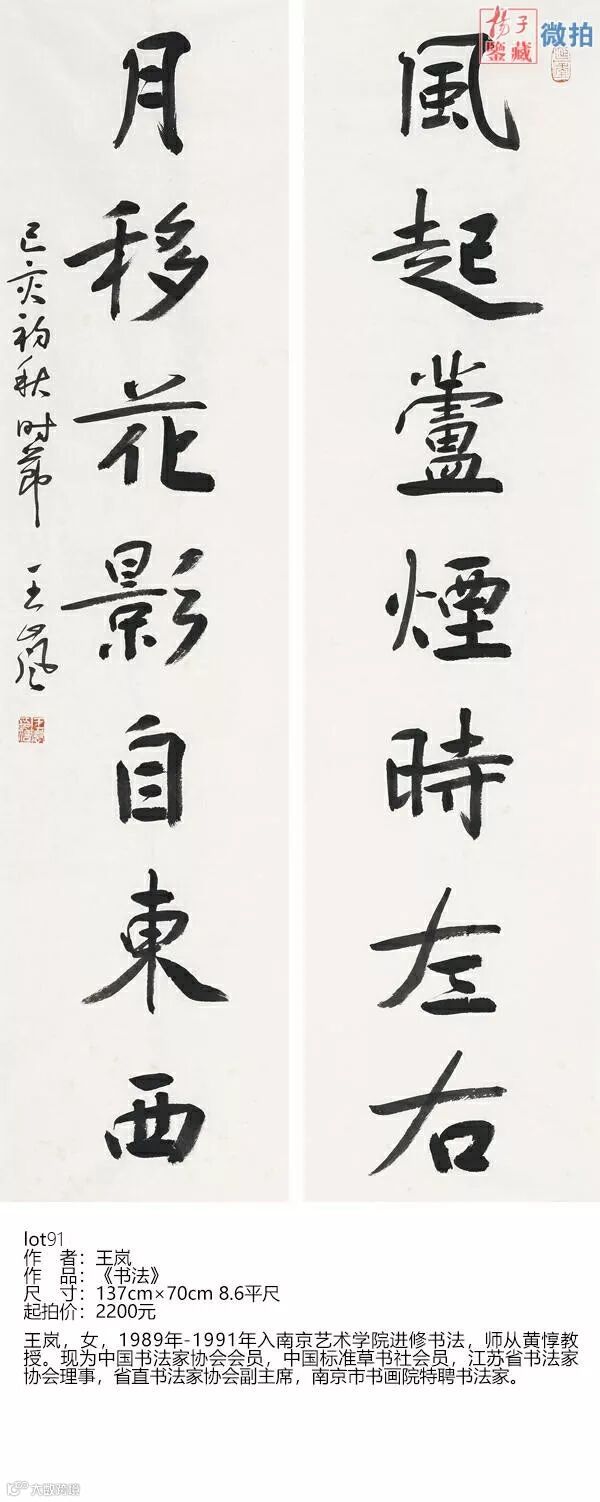 揚子
鑒藏
微拍
風起蘆煙時左右
月移花影自東西
己亥初秋时节 王岚
lot91
作 者：王岚
作 品：《书法》
尺 寸：137cm×70cm 8.6平尺
起拍价：2200元
王岚，女，1989年-1991年入南京艺术学院进修书法，师从黄惇教
授。现为中国书法家协会会员，中国标准草书社会员，江苏省书法家
协会理事，省直书法家协会副主席，南京市书画院特聘书法家。
大数跨境